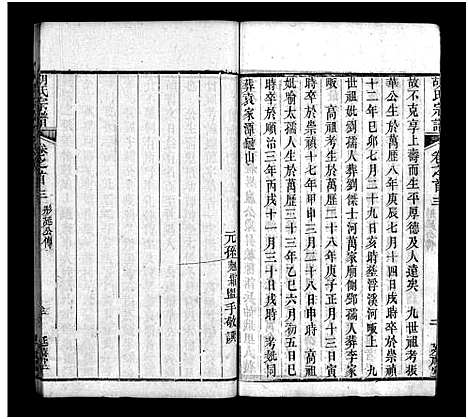 胡氏宗譜
卷之首三
故不克享上壽而生平厚德及人遠矣 九世祖考振
華公生於萬歷八年庚辰七月十四日戌時卒於崇禎
十二年己卯七月二十九日亥時葬浮溪河畈上 九
世祖妣劉孺人葬劉傑士河萬家廟側鄧孺人葬李家
畈上 高祖考生於萬歷二十八年庚子正月十三日寅
時卒於崇禎十七年甲申三月二十八日申時 高祖
妣喻太孺人生於萬歷三十三年乙巳六月初五日巳
時卒於順治三年丙戌十一月三十日戌時 考妣同
葬袁家潭
山
元孫
盥手敬譔
胡氏宗譜
卷之首三
彤廷公傳